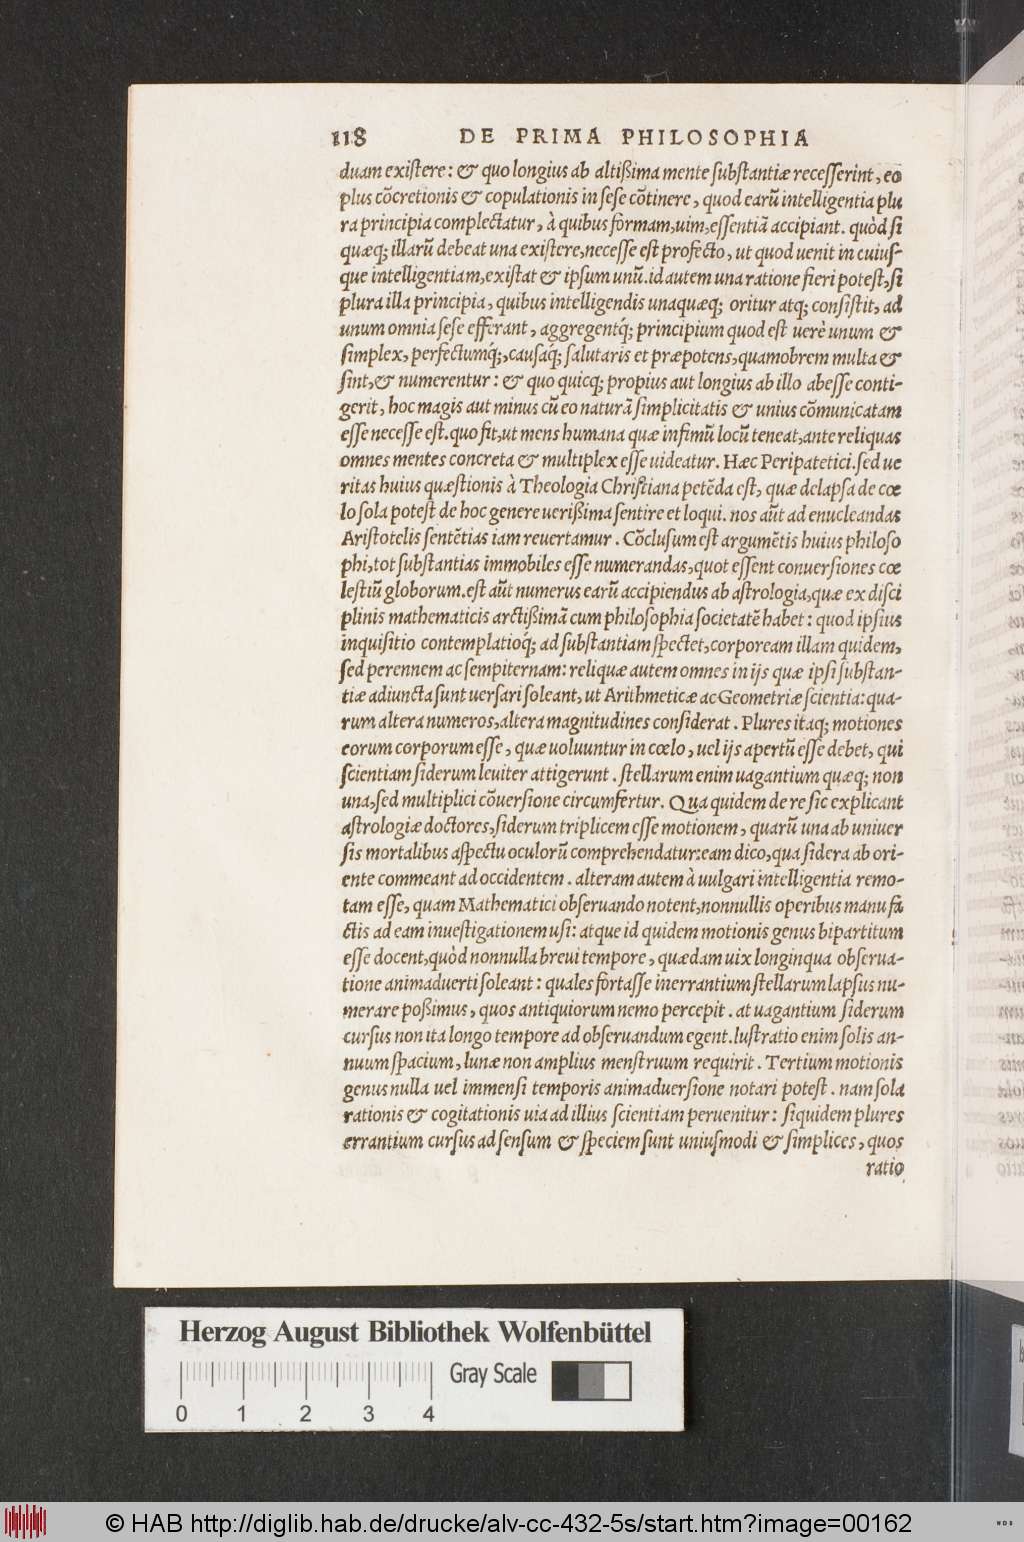 118 DE PRIMA PHILOSOPHIA
duam existere: & quo longius ab altißima mente substantiæ recesserint, eo
plus cõcretionis & copulationis in sese cõtinere, quod earũ intelligentia plu
ra principia complectatur, à quibus formam, uim, essentiã accipiant. quòd si
quæq; illarũ debeat una existere, necesse est profecto, ut quod uenit in cuius-
que intelligentiam, existat & ipsum unũ. id autem una ratione fieri potest, si
plura illa principia, quibus intelligendis unaquæq; oritur atq; consistit, ad
unum omnia sese efferant, aggregentq́; principium quod est uerè unum &
simplex, perfectumq́;, causaq́; salutaris et præpotens, quamobrem multa &
sint, & numerentur: & quo quicq; propius aut longius ab illo abesse conti-
gerit, hoc magis aut minus cũ eo naturã simplicitatis & unius cõmunicatam
esse necesse est. quo fit, ut mens humana quæ infimũ locũ teneat, ante reliquas
omnes mentes concreta & multiplex esse uideatur. Hæc Peripatetici. sed ue
ritas huius quæstionis à Theologia Christiana petẽda est, quæ delapsa de cœ
lo sola potest de hoc genere uerißima sentire et loqui. nos aũt ad enucleandas
Aristotelis sentẽtias iam reuertamur. Cõclusum est argumẽtis huius philoso
phi, tot substantias immobiles esse numerandas, quot essent conuersiones cœ
lestiũ globorum. est aũt numerus earũ accipiendus ab astrologia, quæ ex disci
plinis mathematicis arctißimã cum philosophia societatẽ habet: quod ipsius
inquisitio contemplatioq́; ad substantiam spectet, corpoream illam quidem,
sed perennem ac sempiternam: reliquæ autem omnes in ijs quæ ipsi substan-
tiæ adiuncta sunt uersari soleant, ut Arithmeticæ ac Geometriæ scientia: qua-
rum altera numeros, altera magnitudines considerat. Plures itaq; motiones
eorum corporum esse, quæ uoluuntur in cœlo, uel ijs apertũ esse debet, qui
scientiam siderum leuiter attigerunt. stellarum enim uagantium quæq; non
una, sed multiplici cõuersione circumfertur. Qua quidem de re sic explicant
astrologiæ doctores, siderum triplicem esse motionem, quarũ una ab uniuer
sis mortalibus aspectu oculorũ comprehendatur: eam dico, qua sidera ab ori-
ente commeant ad occidentem. alteram autem à uulgari intelligentia remo-
tam esse, quam Mathematici obseruando notent, nonnullis operibus manu fa
ctis ad eam inuestigationem usi: atque id quidem motionis genus bipartitum
esse docent, quòd nonnulla breui tempore, quædam uix longinqua obserua-
tione animaduerti soleant: quales fortasse inerrantium stellarum lapsus nu-
merare poßimus, quos antiquiorum nemo percepit. at uagantium siderum
cursus non ita longo tempore ad obseruandum egent. lustratio enim solis an-
nuum spacium, lunæ non amplius menstruum requirit. Tertium motionis
genus nulla uel immensi temporis animaduersione notari potest. nam sola
rationis & cogitationis uia ad illius scientiam peruenitur: siquidem plures
errantium cursus ad sensum & speciem sunt uniusmodi & simplices, quos
ratio
Herzog August Bibliothek Wolfenbüttel
Gray Scale
0 1 2 3 4
© HAB http://diglib.hab.de/drucke/alv-cc-432-5s/start.htm?image=00162